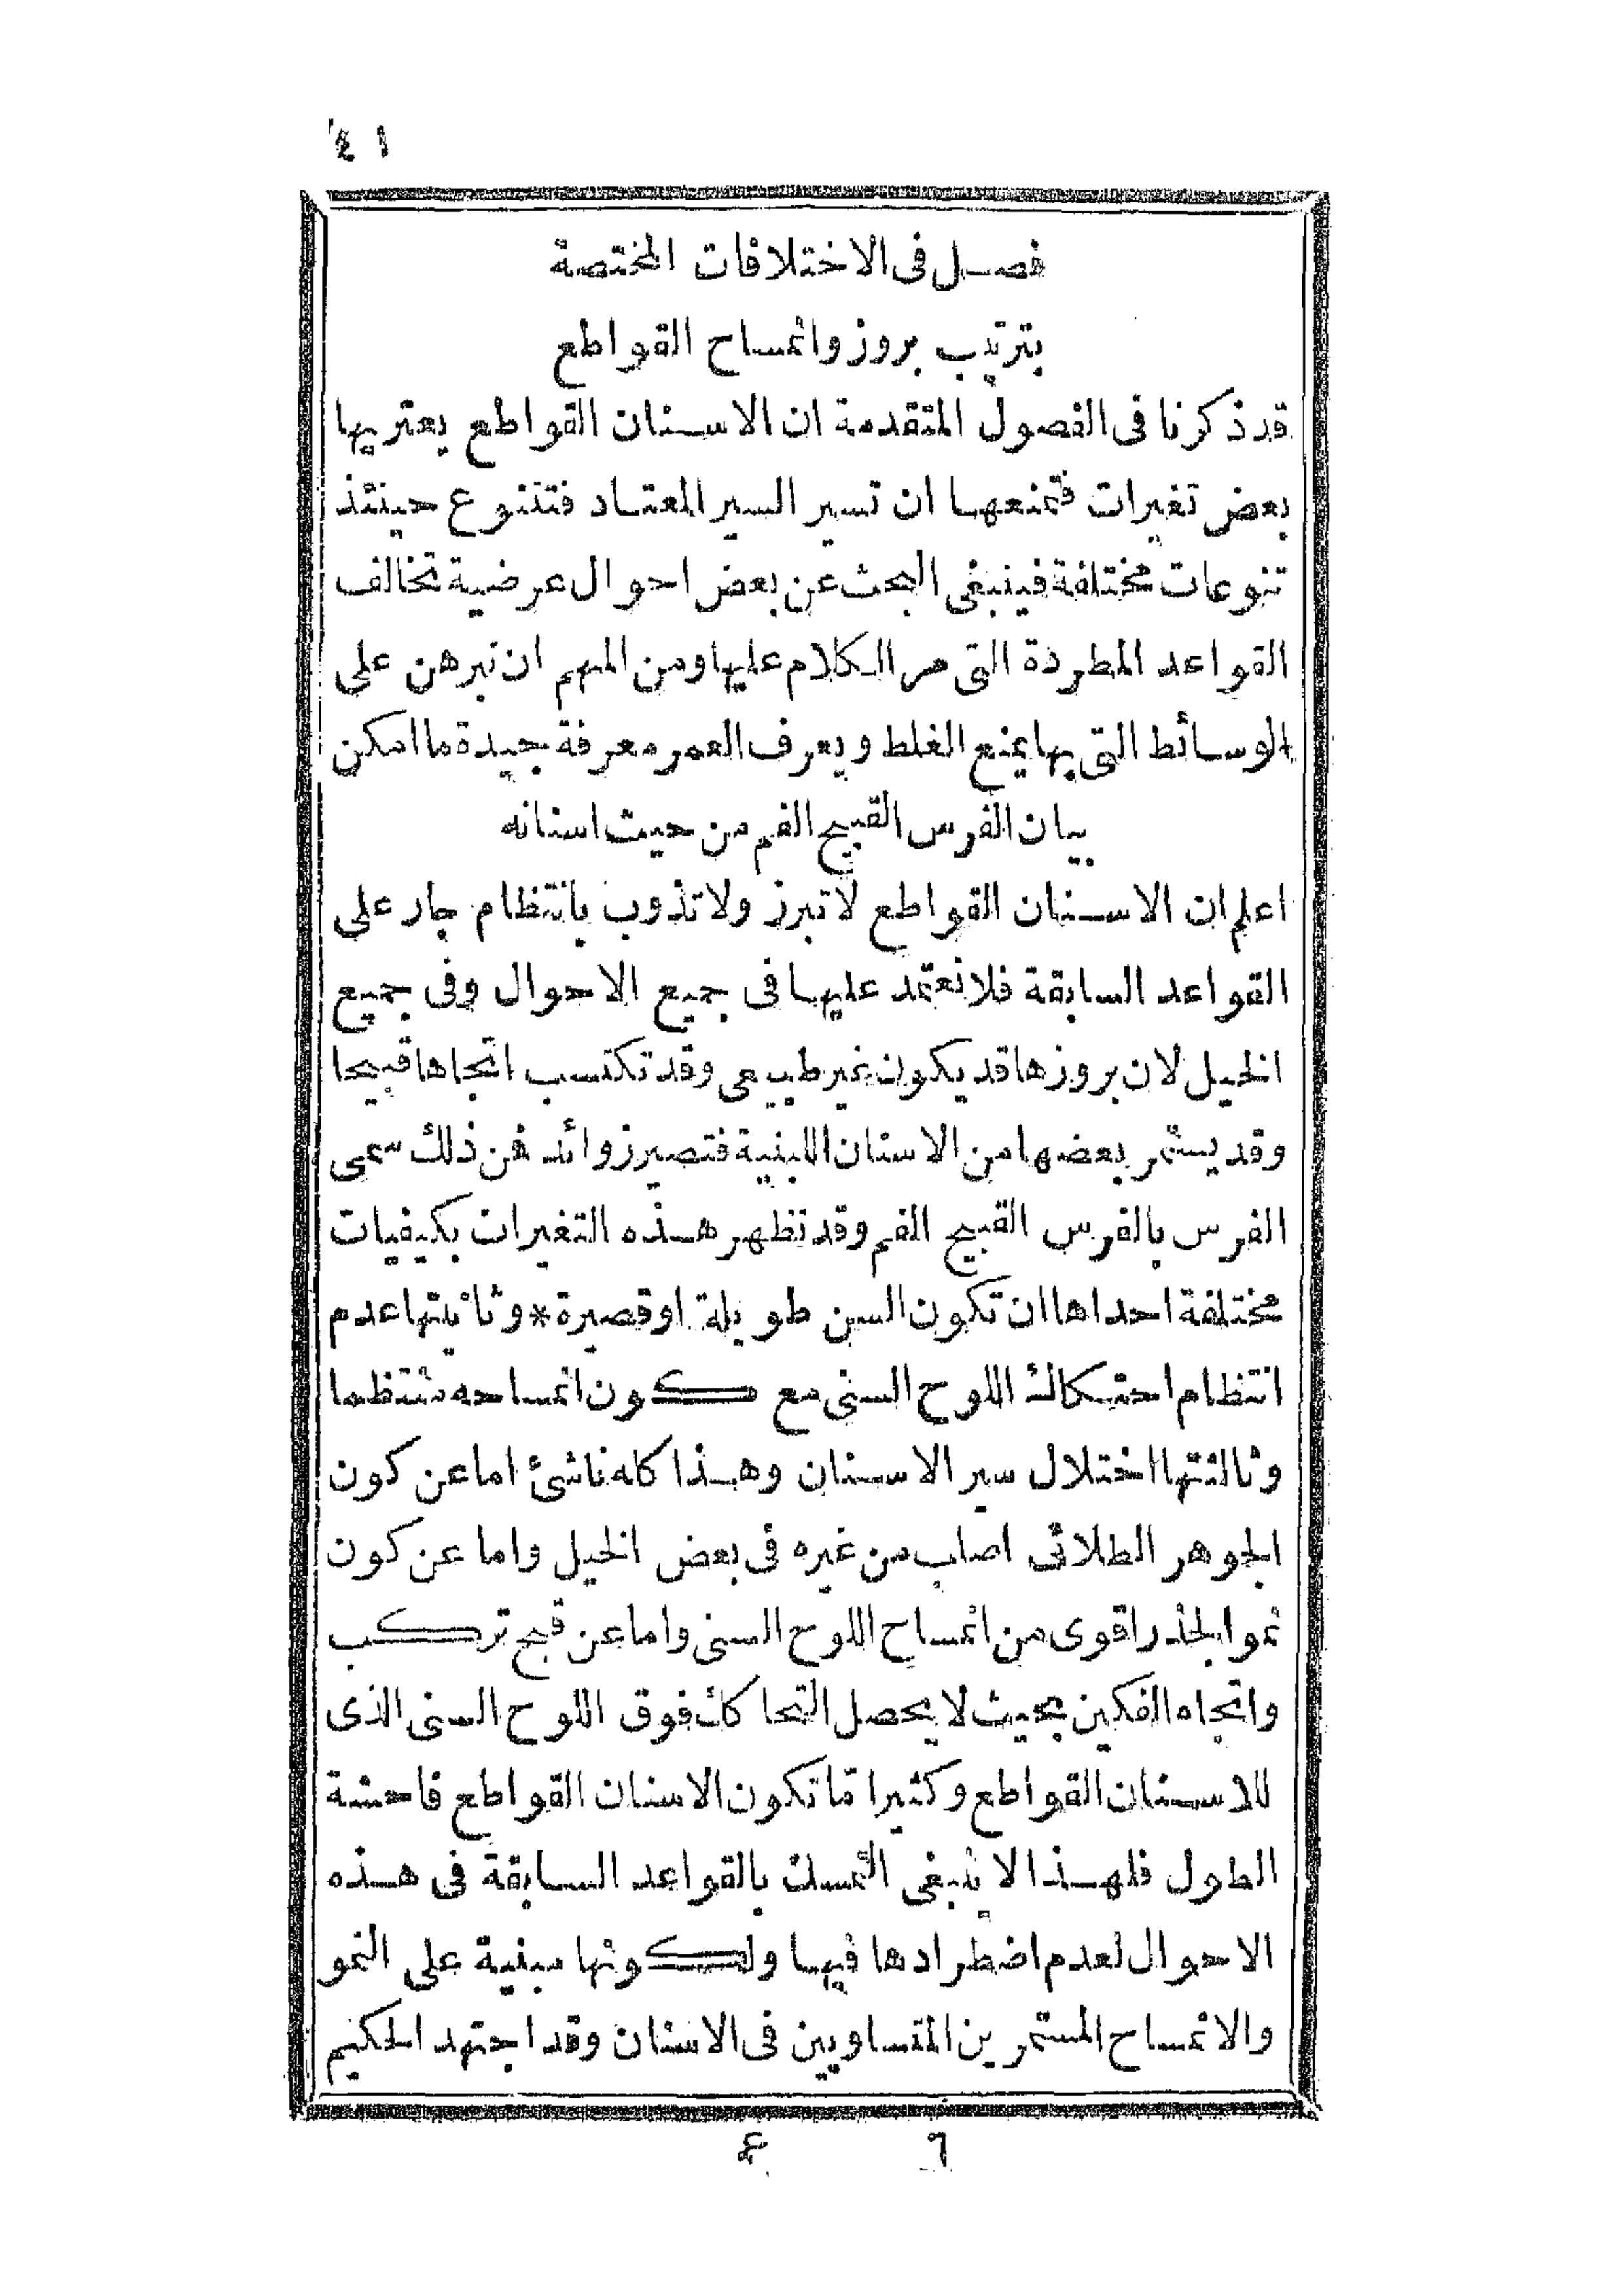 ٤١
فصل فى الاختلافات المختصة
بترتيب بروز وانمساح القواطع
قد ذكرنا فى الفصول المتقدمة ان الاسنان القواطع يعتريها
بعض تغيرات فتمنعها ان تسير السير المعتاد فتتنوع حينئذ
تنوعات مختلفة فينبغى البحث عن بعض احوال عرضية تخالف
القواعد المطردة التى مر الكلام عليها ومن المهم ان نبرهن على
الوسائط التى بها يمنع الغلط ويعرف العمر معرفة جيدة ما امكن
بيان الفرس القبيح الفم من حيث اسنانه
اعلم ان الاسنان القواطع لا تبرز ولا تذوب بانتظام جار على
القواعد السابقة فلا نعتمد عليها فى جميع الاحوال وفى جميع
الخيل لان بروزها قد يكون غير طبيعى وقد تكتسب اتجاها قبيحا
وقد يستمر بعضها من الاسنان اللبنية فتصير زوائد فمن ذلك سمى
الفرس بالفرس القبيح الفم وقد تظهر هذه التغيرات بكيفيات
مختلفة احداها ان تكون السن طويلة او قصيرة * وثانيتها عدم
انتظام احتكاك اللوح السنى مع كون انمساحه منتظما
وثالثتها اختلال سير الاسنان وهذا كله ناشئ اما عن كون
الجوهر الطلائى اصلب من غيره فى بعض الخيل واما عن كون
نمو الجذر اقوى من انمساح اللوح السنى واما عن قبح تركب
واتجاه الفكين بحيث لا يحصل التحاكك فوق اللوح السنى الذى
للاسنان القواطع وكثيرا ما تكون الاسنان القواطع فاحشة
الطول فلهذا لا ينبغى التمسك بالقواعد السابقة فى هذه
الاحوال لعدم اضطرادها فيها ولكونها مبنية على النمو
والانمساح المستمرين المتساويين فى الاسنان وقد اجتهد الحكيم
٦ ع